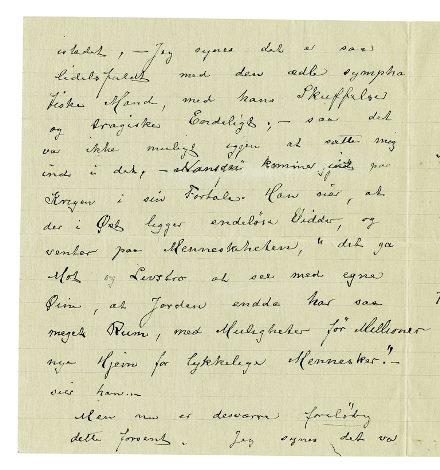 istedet, — Jeg synes det er saa
lidelsfuldt med den ædle sympha
tiske Mand, med hans Skuffelse
og tragiske Endeligt, — saa det
va ikke muligt igjen at sætte mig
ind i det, — Nansen kommer ind paa
Krigen i sin Fortale. Han sier, at
der i Øst ligger endeløse Vidder, og
venter paa Menneskeheten, "det ga
Mot og Livstro at see med egne
Øine, at Jorden endda har saa
meget Rum, med Muligheter för Millioner
nye Hjem for lykkelige Mennesker." —
sier han. —
Men nu er desværre foreløbig
dette forsent. Jeg synes det va